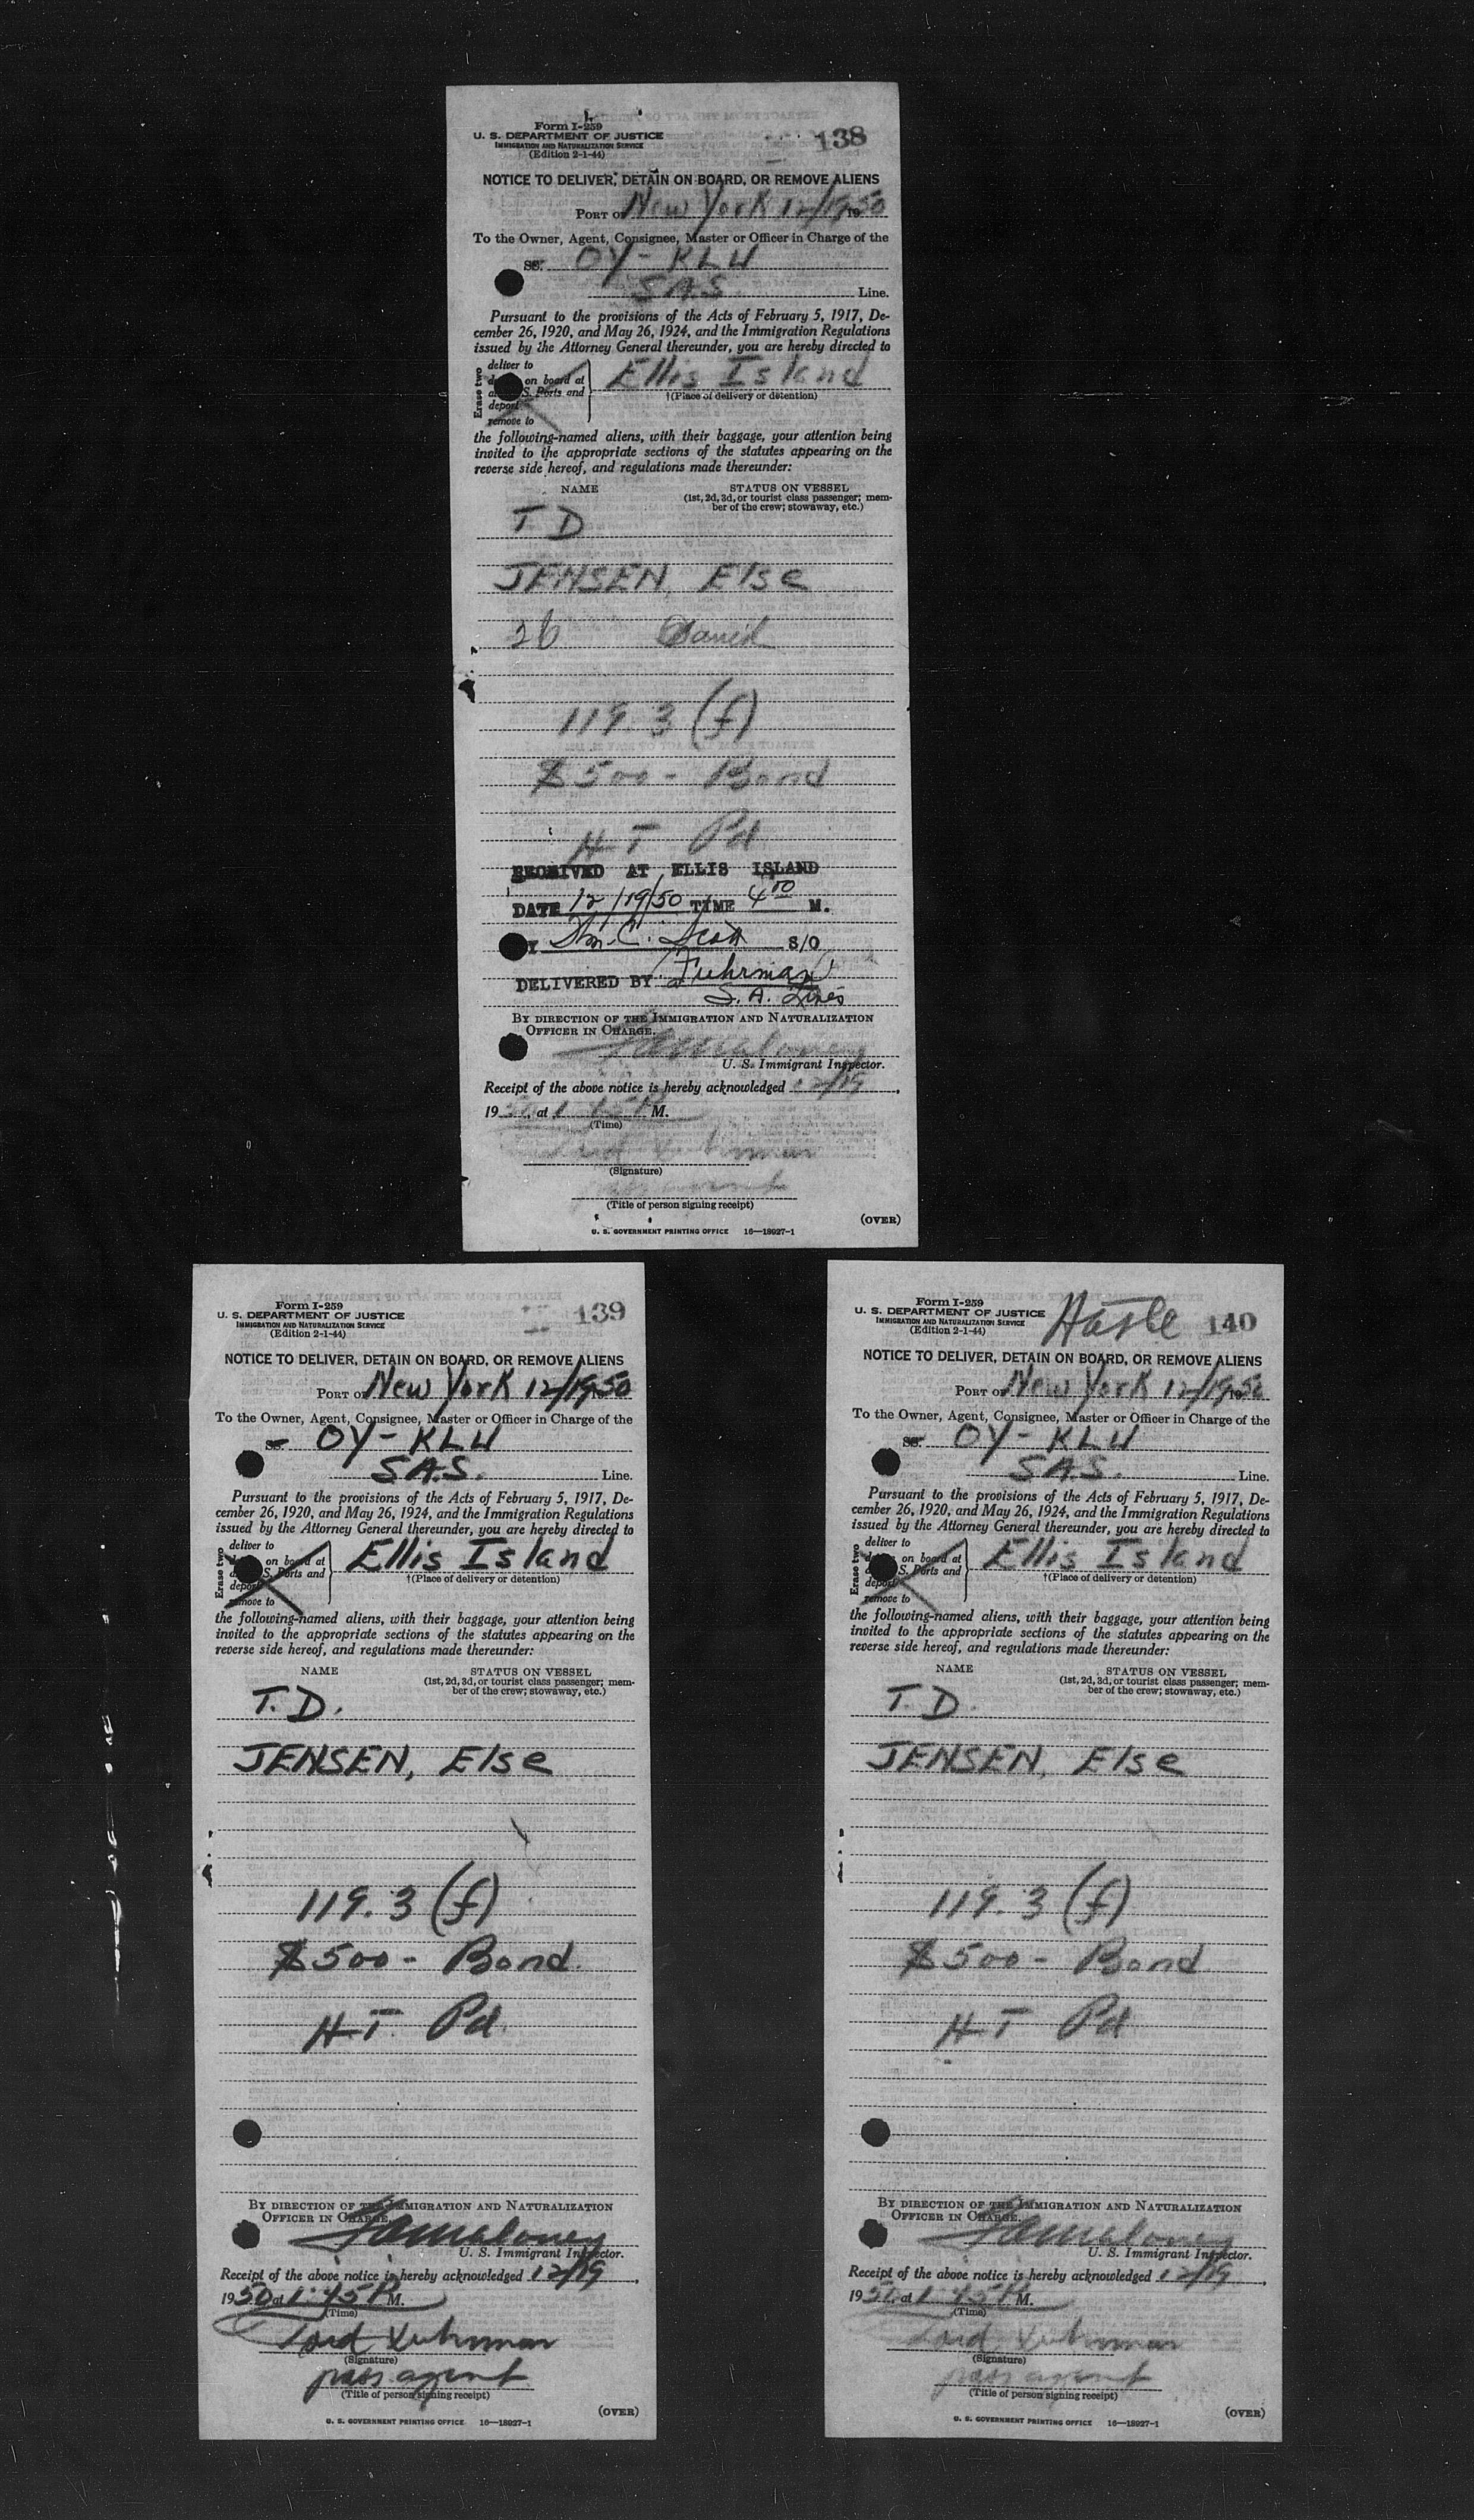 Form I-259
U. S. DEPARTMENT OF JUSTICE
IMMIGRATION AND NATURALIZATION SERVICE
(Edition 2-1-44)
138
NOTICE TO DELIVER, DETAIN ON BOARD, OR REMOVE ALIENS
PORT OF New York 12/19, 1950
To the Owner, Agent, Consignee, Master or Officer in Charge of the
SS. OY-KLU
SAS Line.
Pursuant to the provisions of the Acts of February 5, 1917, De-
cember 26, 1920, and May 26, 1924, and the Immigration Regulations
issued by the Attorney General thereunder, you are hereby directed to
Erase two
deliver to
on board at
S. Ports and
deport
remove to
Ellis Island
†(Place of delivery or detention)
the following-named aliens, with their baggage, your attention being
invited to the appropriate sections of the statutes appearing on the
reverse side hereof, and regulations made thereunder:
NAME STATUS ON VESSEL
(1st, 2d, 3d, or tourist class passenger; mem-
ber of the crew; stowaway, etc.)
T D
JENSEN, Else
26
119.3 (f)
$500- Bond
HT Pd
RECEIVED AT ELLIS ISLAND
DATE 12/19/50 TIME 4 00 M.
Wm. C. Scott S/O
DELIVERED BY Fuhrman
S. A. Lines
BY DIRECTION OF THE IMMIGRATION AND NATURALIZATION
OFFICER IN CHARGE.
U. S. Immigrant Inspector.
Receipt of the above notice is hereby acknowledged 12/19,
1950, at 1:45 P M.
(Time)
(Signature)
pass agent
(Title of person signing receipt)
(OVER)
U. S. GOVERNMENT PRINTING OFFICE 16—18927-1
Form I-259
U. S. DEPARTMENT OF JUSTICE
IMMIGRATION AND NATURALIZATION SERVICE
(Edition 2-1-44)
139
NOTICE TO DELIVER, DETAIN ON BOARD, OR REMOVE ALIENS
PORT OF New York 12/19, 1950
To the Owner, Agent, Consignee, Master or Officer in Charge of the
SS. OY-KLU
S.A.S. Line.
Pursuant to the provisions of the Acts of February 5, 1917, De-
cember 26, 1920, and May 26, 1924, and the Immigration Regulations
issued by the Attorney General thereunder, you are hereby directed to
Erase two
deliver to
on board at
S. Ports and
deport
remove to
Ellis Island
†(Place of delivery or detention)
the following-named aliens, with their baggage, your attention being
invited to the appropriate sections of the statutes appearing on the
reverse side hereof, and regulations made thereunder:
NAME STATUS ON VESSEL
(1st, 2d, 3d, or tourist class passenger; mem-
ber of the crew; stowaway, etc.)
T. D.
JENSEN, Else
119.3 (f)
$500- Bond.
HT. Pd.
BY DIRECTION OF THE IMMIGRATION AND NATURALIZATION
OFFICER IN CHARGE.
U. S. Immigrant Inspector.
Receipt of the above notice is hereby acknowledged 12/19,
1950 at 1:45 P M.
(Time)
(Signature)
pass agent
(Title of person signing receipt)
(OVER)
U. S. GOVERNMENT PRINTING OFFICE 16—18927-1
Form I-259
U. S. DEPARTMENT OF JUSTICE
IMMIGRATION AND NATURALIZATION SERVICE
(Edition 2-1-44)
140
NOTICE TO DELIVER, DETAIN ON BOARD, OR REMOVE ALIENS
PORT OF New York 12/19, 1950
To the Owner, Agent, Consignee, Master or Officer in Charge of the
SS. OY-KLU
SAS. Line.
Pursuant to the provisions of the Acts of February 5, 1917, De-
cember 26, 1920, and May 26, 1924, and the Immigration Regulations
issued by the Attorney General thereunder, you are hereby directed to
Erase two
deliver to
on board at
S. Ports and
deport
remove to
Ellis Island
†(Place of delivery or detention)
the following-named aliens, with their baggage, your attention being
invited to the appropriate sections of the statutes appearing on the
reverse side hereof, and regulations made thereunder:
NAME STATUS ON VESSEL
(1st, 2d, 3d, or tourist class passenger; mem-
ber of the crew; stowaway, etc.)
T D.
JENSEN, Else
119.3 (f)
$500- Bond
HT Pd
BY DIRECTION OF THE IMMIGRATION AND NATURALIZATION
OFFICER IN CHARGE.
U. S. Immigrant Inspector.
Receipt of the above notice is hereby acknowledged 12/19,
1950, at 1:45 P M.
(Time)
(Signature)
pass agent
(Title of person signing receipt)
(OVER)
U. S. GOVERNMENT PRINTING OFFICE 16—18927-1